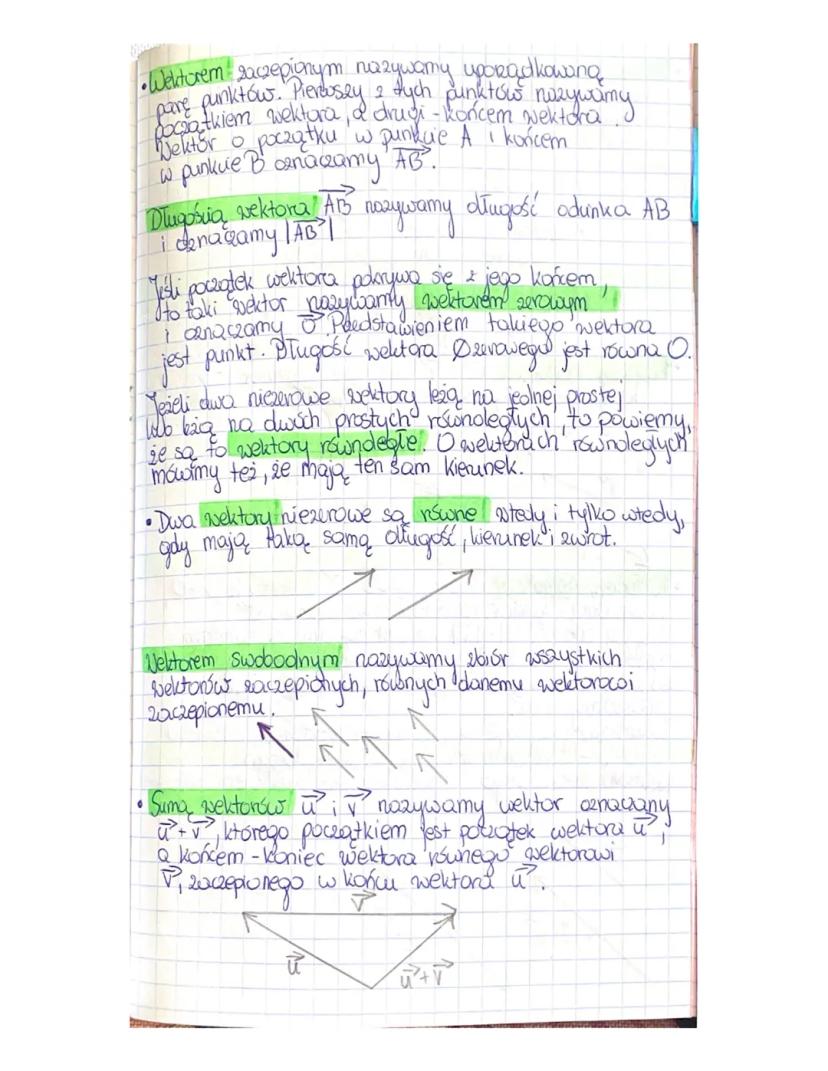 • Wektorem zaczepionym nazywamy uporządkowaną
parę punktów. Pierwszy z tych punktów nazywamy
początkiem wektora, a drugi - końcem wektora.
Wektor o początku w punkcie A i końcem
w punkcie B oznaczamy AB→.
Długością wektora AB→ nazywamy długość odcinka AB
i oznaczamy |AB→|
Jeśli początek wektora pokrywa się z jego końcem,
to taki wektor nazywamy wektorem zerowym
i oznaczamy 0→. Przedstawieniem takiego wektora
jest punkt. Długość wektora zerowego jest równa 0.
Jeżeli dwa niezerowe wektory leżą na jednej prostej
lub leżą na dwóch prostych równoległych, to powiemy,
że są to wektory równoległe. O wektorach równoległych
mówimy też, że mają ten sam kierunek.
• Dwa wektory niezerowe są równe wtedy i tylko wtedy,
gdy mają taką samą długość, kierunek i zwrot.
Wektorem swobodnym nazywamy zbiór wszystkich
wektorów zaczepionych, równych danemu wektorowi
zaczepionemu.
• Sumą wektorów u→ i v→ nazywamy wektor oznaczany
u→+v→, którego początkiem jest początek wektora u→,
a końcem - koniec wektora równego wektorowi
v→, zaczepionego w końcu wektora u→.
v→
u→
u→+v→